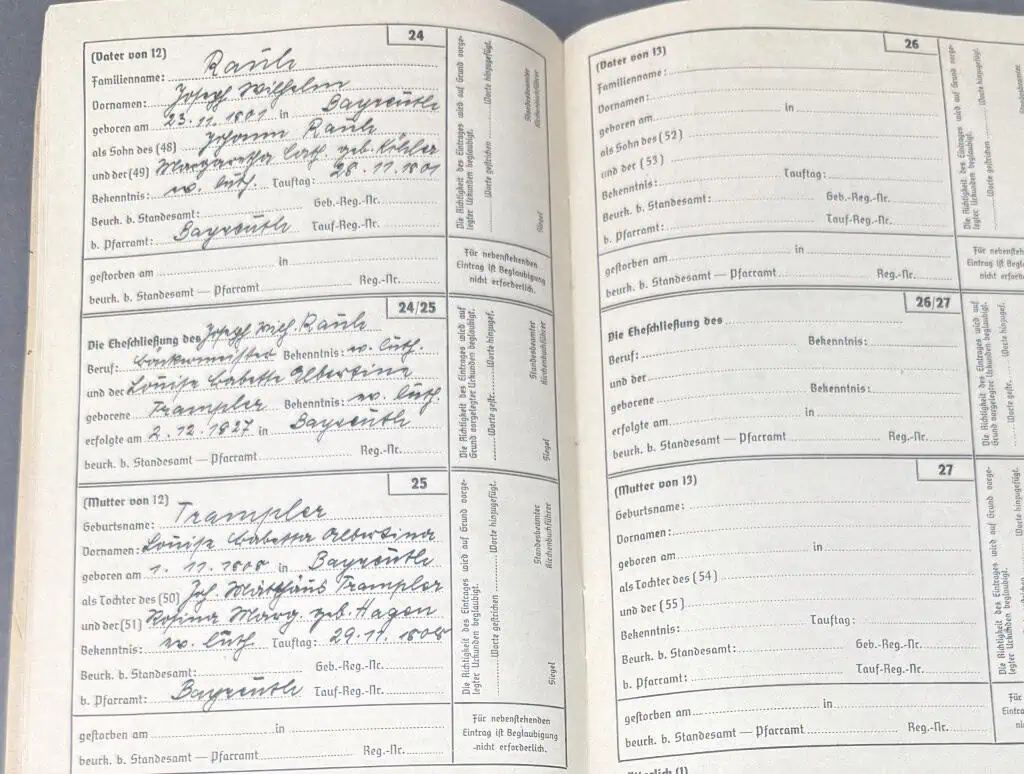 24
(Vater von 12)
Familienname: Rauh
Vornamen: Joseph Wilhelm
geboren am 23.11.1801 in Bayreuth
als Sohn des (48) Johann Rauh
und der (49) Margaretha Cath. geb. Köhler
Bekenntnis: ev. luth. Tauftag: 28.11.1801
Beurk. b. Standesamt: Geb.-Reg.-Nr.
b. Pfarramt: Bayreuth Tauf-Reg.-Nr.
gestorben am in
beurk. b. Standesamt — Pfarramt Reg.-Nr.
Die Richtigkeit des Eintrages wird auf Grund vorge-
legter Urkunden beglaubigt.
Worte gestrichen Worte hinzugefügt.
Standesbeamter
Kirchenbuchführer
Siegel
Für nebenstehenden
Eintrag ist Beglaubigung
nicht erforderlich.
24/25
Die Eheschließung des Joseph Wilh. Rauh
Beruf: Bäckermeister Bekenntnis: ev. luth.
und der Louise Babetta Albertina
geborene Trampler Bekenntnis: ev. luth.
erfolgte am 2.12.1827 in Bayreuth
beurk. b. Standesamt — Pfarramt Reg.-Nr.
Die Richtigkeit des Eintrages wird auf
Grund vorgelegter Urkunden beglaubigt.
Worte gestr. Worte hinzugef.
Standesbeamter
Kirchenbuchführer
Siegel
25
(Mutter von 12)
Geburtsname: Trampler
Vornamen: Louise Babetta Albertina
geboren am 1.11.1808 in Bayreuth
als Tochter des (50) Joh. Matthäus Trampler
und der (51) Rosina Marg. geb. Hagen
Bekenntnis: ev. luth Tauftag: 29.11.1808
Beurk. b. Standesamt: Geb.-Reg.-Nr.
b. Pfarramt: Bayreuth Tauf-Reg.-Nr.
gestorben am in
beurk. b. Standesamt — Pfarramt Reg.-Nr.
Die Richtigkeit des Eintrages wird auf Grund vorge-
legter Urkunden beglaubigt.
Worte gestrichen Worte hinzugefügt.
Standesbeamter
Kirchenbuchführer
Siegel
Für nebenstehenden
Eintrag ist Beglaubigung
nicht erforderlich.
26
(Vater von 13)
Familienname:
Vornamen:
geboren am in
als Sohn des (52)
und der (53)
Bekenntnis: Tauftag:
Beurk. b. Standesamt: Geb.-Reg.-Nr.
b. Pfarramt: Tauf-Reg.-Nr.
gestorben am in
beurk. b. Standesamt — Pfarramt Reg.-Nr.
Die Richtigkeit des Eintrages wird auf Grund vorge-
legter Urkunden beglaubigt.
Worte gestrichen Worte hinzugefügt.
Für nebenste
Eintrag ist Begla
nicht erforde
26/27
Die Eheschließung des
Beruf: Bekenntnis:
und der
geborene Bekenntnis:
erfolgte am in
beurk. b. Standesamt — Pfarramt Reg.-Nr.
Die Richtigkeit des Eintrages wird auf
Grund vorgelegter Urkunden beglaubigt.
Worte gestr. Worte hinzugef.
27
(Mutter von 13)
Geburtsname:
Vornamen:
geboren am in
als Tochter des (54)
und der (55)
Bekenntnis: Tauftag:
Beurk. b. Standesamt: Geb.-Reg.-Nr.
b. Pfarramt: Tauf-Reg.-Nr.
gestorben am in
beurk. b. Standesamt — Pfarramt Reg.-Nr.
Die Richtigkeit des Eintrages wird auf Grund vorge-
legter Urkunden beglaubigt.
Worte gestrichen Worte hinzugefügt.
Für neb
Eintrag
ni